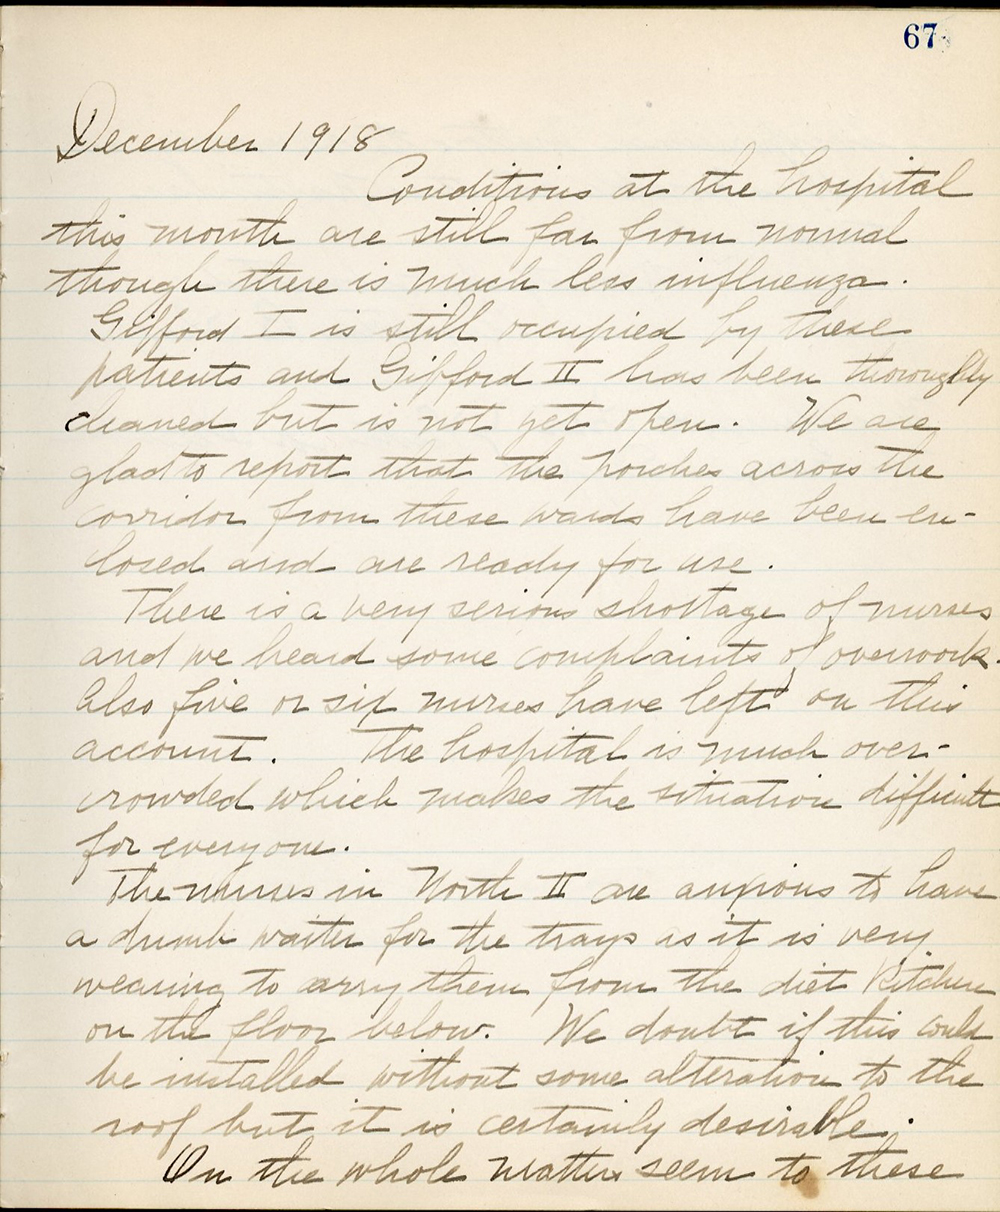 67
December 1918
Conditions at the hospital
this month are still far from normal
though there is much less influenza.
Gifford I is still occupied by these
patients and Gifford II has been thoroughly
cleaned but is not yet open. We are
glad to report that the porches across the
corridor from these wards have been en-
closed and are ready for use.
There is a very serious shortage of nurses
and we heard some complaints of overwork.
Also five or six nurses have left on this
account. The hospital is much over-
crowded which makes the situation difficult
for everyone.
The nurses in North II are anxious to have
a dumb waiter for the trays as it is very
wearing to carry them from the diet kitchen
on the floor below. We doubt if this could
be installed without some alteration to the
roof but it is certainly desirable.
On the whole matters seem to these